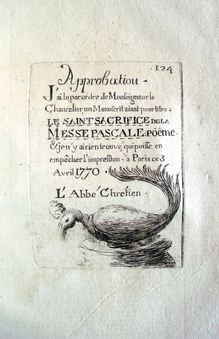 124
Approbation.
J'ai lu par ordre de Monseigneur le
Chancelier un Manuscrit aiant pour titre:
LE SAINT SACRIFICE DE LA
MESSE PASCALE. poëme
& je n'y ai rien trouvé qui puisse en
empêcher l'impression. à Paris ce 3
Avril 1770.
L'Abbé Chretien.